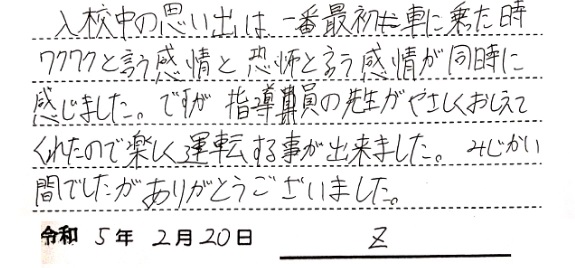 入校中の思い出は一番最初に車に乗た時
ワクワクと言う感情と恐怖と言う感情が同時に
感じました。ですが指導員の先生がやさしくおしえて
くれたので楽しく運転する事が出来ました。みじかい
間でしたがありがとうございました。
令和 5年 2月20日 Z